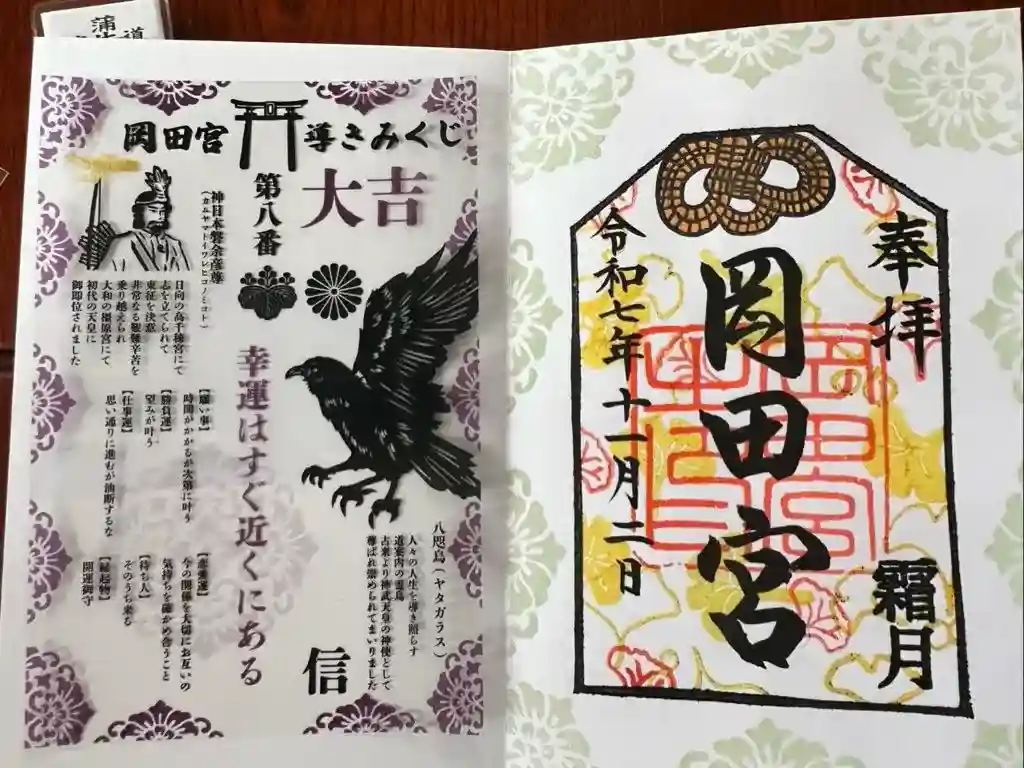 岡田宮
導きみくじ
第八番
大吉
神日本磐余彦尊
(カムヤマトイワレヒコノミコト)
日向の高千穂宮にて
志を立てられて
東征を決意
非常なる艱難辛苦を
乗り越えられ
大和の橿原宮にて
初代の天皇に
御即位されました
幸運はすぐ近くにある
【願い事】
時間がかかるが次第に叶う
【勝負運】
望みが叶う
【仕事運】
思い通りに進むが油断するな
【恋愛運】
今の関係を大切にお互いの
気持ちを確かめ合うこと
【待ち人】
そのうち来る
【縁起物】
開運御守
八咫烏(ヤタガラス)
人々の人生を導き照らす
道案内の霊鳥
古来より神武天皇の神使として
尊ばれ崇められてまいりました
信
奉拝
霜月
岡田宮
令和七年十一月二日
岡田宮